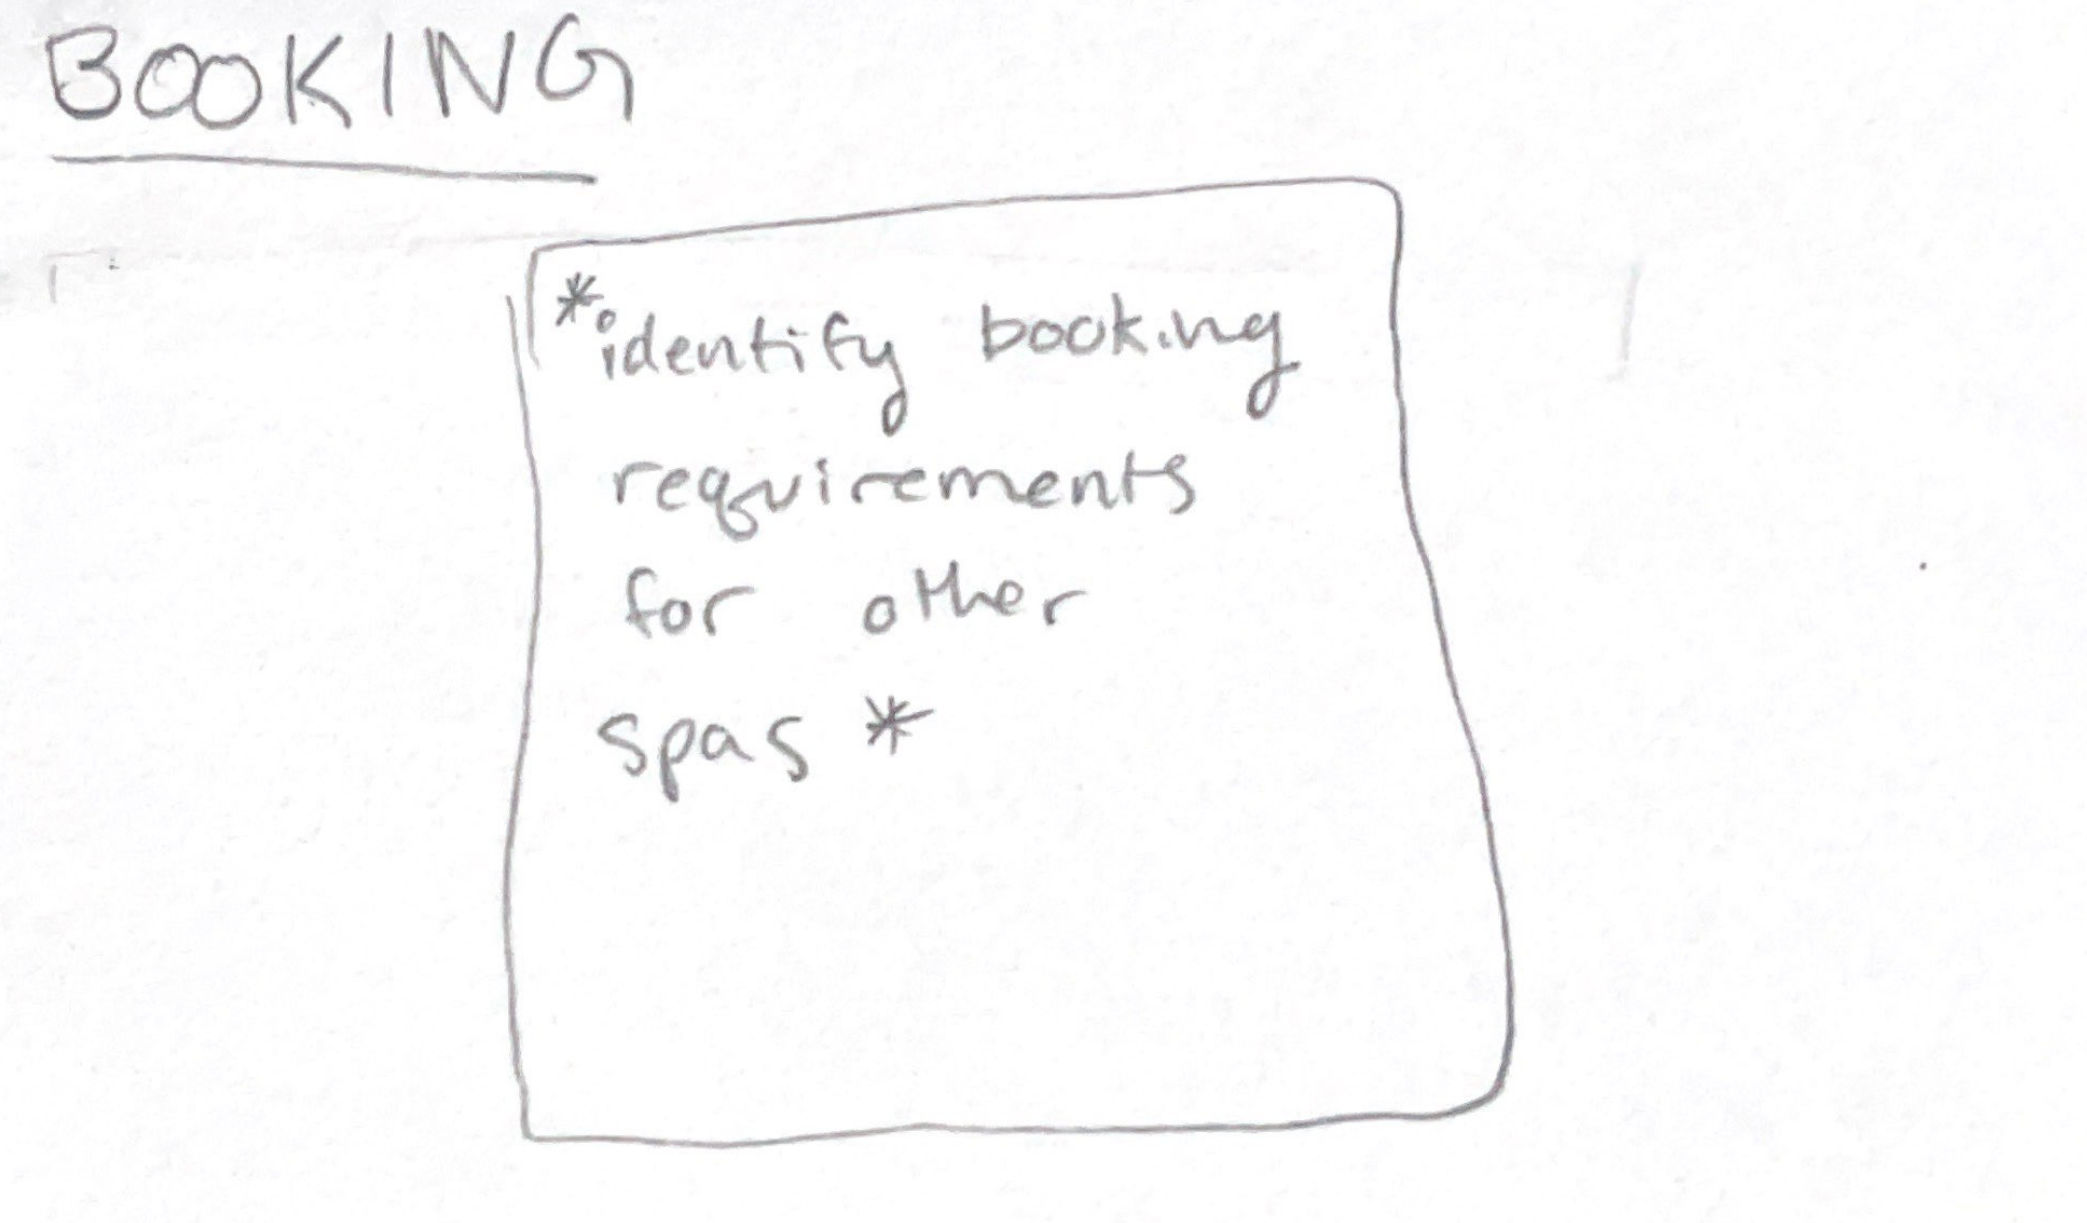 BOOKING
*identify booking
requirements
for other
spas *